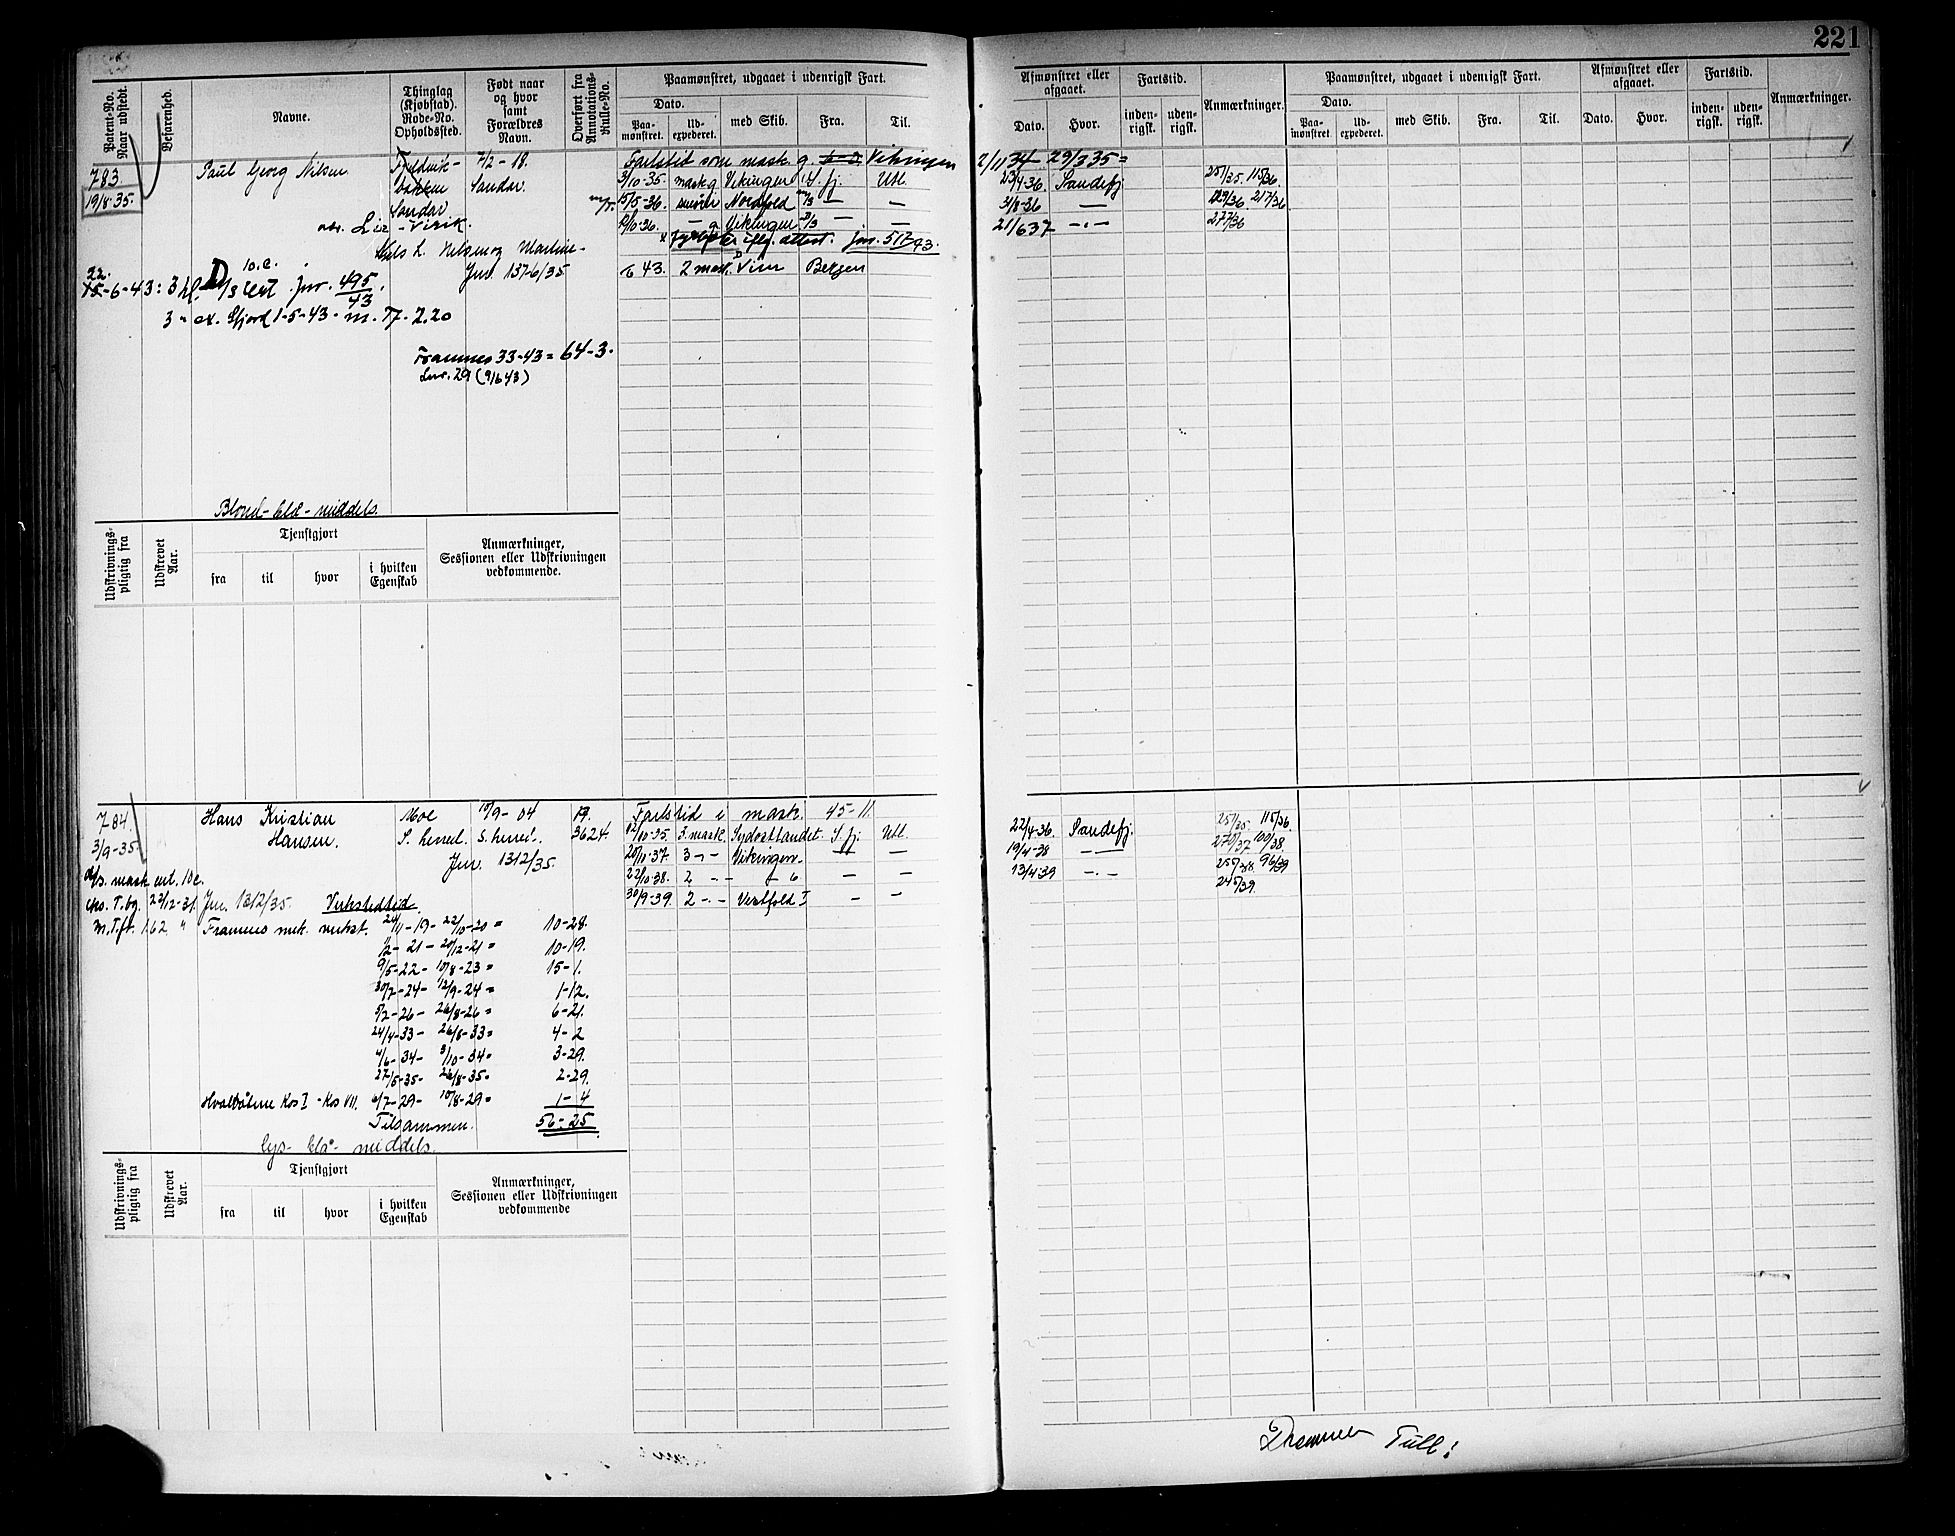 221
Patent-No. Naar udstedt.
Befarenhed.
Navne.
Thinglag (Kjøbstad). Rode-No. Opholdssted.
Født naar og hvor samt Forældres Navn.
Overført fra Annotations-Rulle-No.
Paamønstret, udgaaet i udenrigsk Fart.
Dato.
Paa-mønstret.
Ud-expederet.
med Skib.
Fra.
Til.
Afmønstret eller afgaaet.
Dato.
Hvor.
Fartstid.
inden-rigsk.
uden-rigsk.
Anmærkninger.
Paamønstret, udgaaet i udenrigsk Fart.
Dato.
Paa-mønstret.
Ud-expederet.
med Skib.
Fra.
Til.
Afmønstret eller afgaaet.
Dato.
Hvor.
Fartstid.
inden-rigsk.
uden-rigsk.
Anmærkninger.
783.
19/8-35.
Paul Georg Nilsen
Sandar
7/2-18.
Sandar.
Nils L. Nilsen og Martine
Jnr. 1376/35
Fartstid som mask.g. Vikingen 2/11 34 - 29/3 35 =
3/10-35. mask g. Vikingen S.fj. Utl. 23/4-36. Sandefj 251/35. 115/36.
15/5-36. Nordfold — 3/8-36 — 217/36
— g Vikingen — 21/6 37 — · — 277/36
Fyrbøter iflg. attest. jnr. 517/43.
43. 2 mask. Vim Bergen
22.
15-6-43: 3 kl. D/s sert. jnr. 495/43.
3 " ex. Gjord 1-5-43 - m. Tj. 2.20
Framnes 33-43 = 64-3.
Lnr. 29 (9/6 43)
Blond - blå - middels.
Udskrivnings-pligtig fra
Udskrevet Aar.
Tjenstgjort
fra
til
hvor
i hvilken Egenskab
Anmærkninger, Sessionen eller Udskrivningen vedkommende.
784.
3/9-35
Hans Kristian Hansen.
Moe
S. herred.
10/9-04
S. herred.
Jnr. 1312/35.
3624.
Fartstid i mask. 45-11.
12/10-35. 3. mask. Sydostlandet S.fj. Utl. 22/4-36. Sandefj. 251/35. 115/36.
20/11-37. 3 - - Vikingen — — 19/4-38 — 270/37 100/38.
22/10-38. 2 - - — 6 — — 13/4-39 — · — 255/38. 96/39
30/9-39. 2 - - Vestfold I — — 245/39.
D/s. mask sert. 10c.
Jnr. 1312/35. Verkstedtid.
Framnes mek. verkst. 24/11-19 - 22/10-20 = 10-28.
1/2-21 - 20/12-21 = 10-19.
9/5-22 - 10/8-23 = 15-1.
30/7-24 - 12/9-24 = 1-12.
5/2-26 - 26/8-26 = 6-21.
24/4-33 - 26/8-33 = 4-2
4/6-34 - 3/10-34 = 3-29.
27/5-35 - 26/8-35 = 2-29.
Hvalbåtene Kos I - Kos VII. 6/7-29 - 10/8-29 = 1-4
Tilsammen. 56-25
Lys - blå - middels.
Udskrivnings-pligtig fra
Udskrevet Aar.
Tjenstgjort
fra
til
hvor
i hvilken Egenskab
Anmærkninger, Sessionen eller Udskrivningen vedkommende